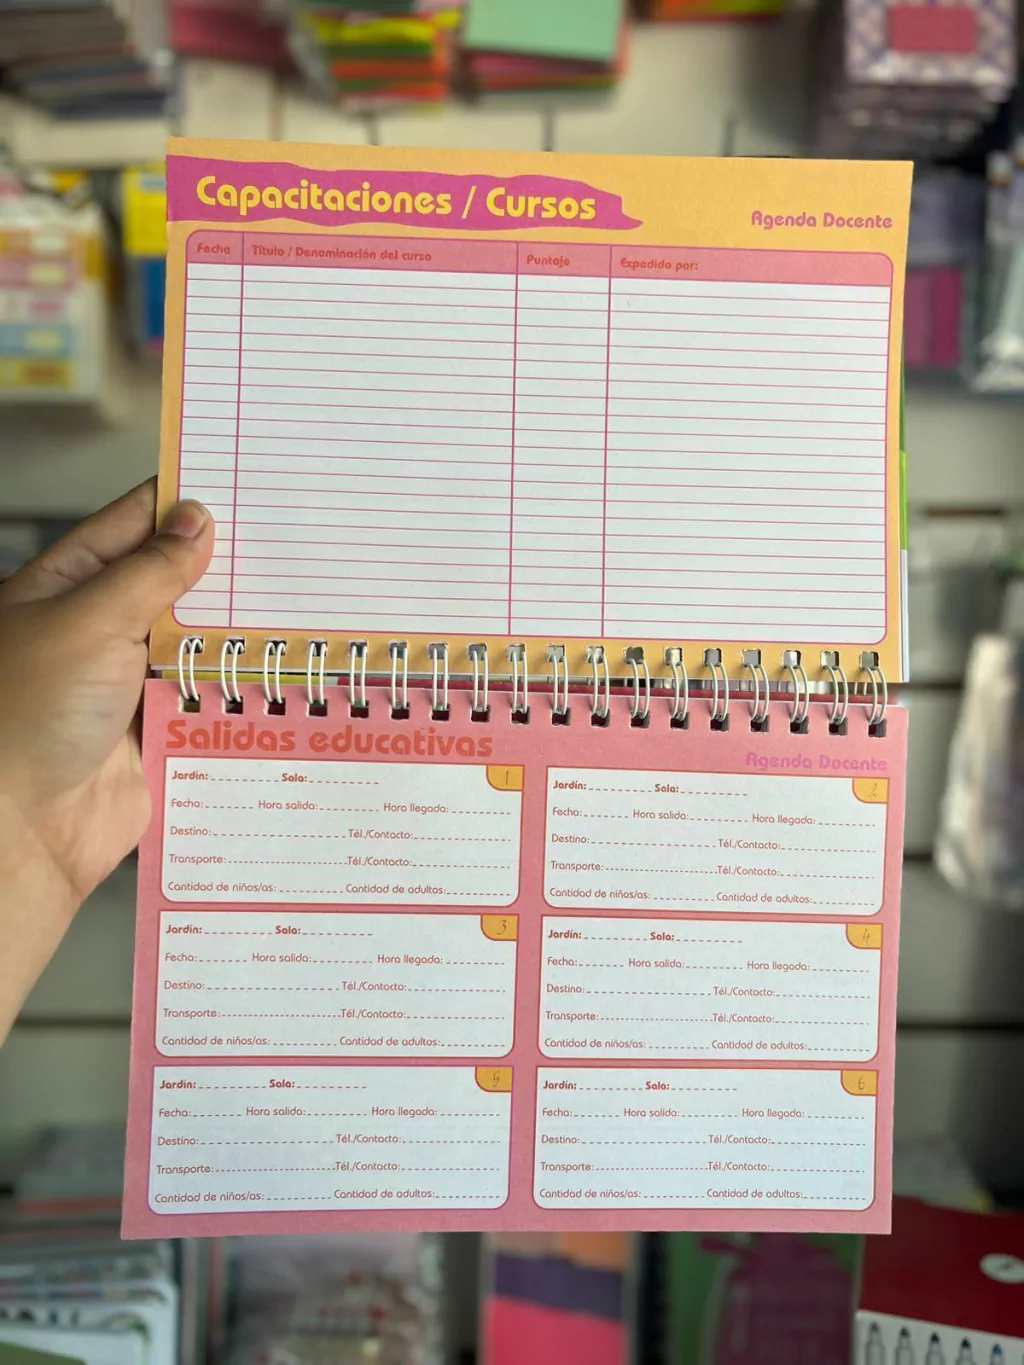 Capacitaciones / Cursos
Agenda Docente
Fecha Titulo / Denominación del curso Puntaje Expedido por:
Salidas educativas
Agenda Docente
1
Jardín: Sala:
Fecha: Hora salida: Hora llegada:
Destino: Tél./Contacto:
Transporte: Tél./Contacto:
Cantidad de niños/as: Cantidad de adultos:
2
Jardín: Sala:
Fecha: Hora salida: Hora llegada:
Destino: Tél./Contacto:
Transporte: Tél./Contacto:
Cantidad de niños/as: Cantidad de adultos:
3
Jardín: Sala:
Fecha: Hora salida: Hora llegada:
Destino: Tél./Contacto:
Transporte: Tél./Contacto:
Cantidad de niños/as: Cantidad de adultos:
4
Jardín: Sala:
Fecha: Hora salida: Hora llegada:
Destino: Tél./Contacto:
Transporte: Tél./Contacto:
Cantidad de niños/as: Cantidad de adultos:
5
Jardín: Sala:
Fecha: Hora salida: Hora llegada:
Destino: Tél./Contacto:
Transporte: Tél./Contacto:
Cantidad de niños/as: Cantidad de adultos:
6
Jardín: Sala:
Fecha: Hora salida: Hora llegada:
Destino: Tél./Contacto:
Transporte: Tél./Contacto:
Cantidad de niños/as: Cantidad de adultos: